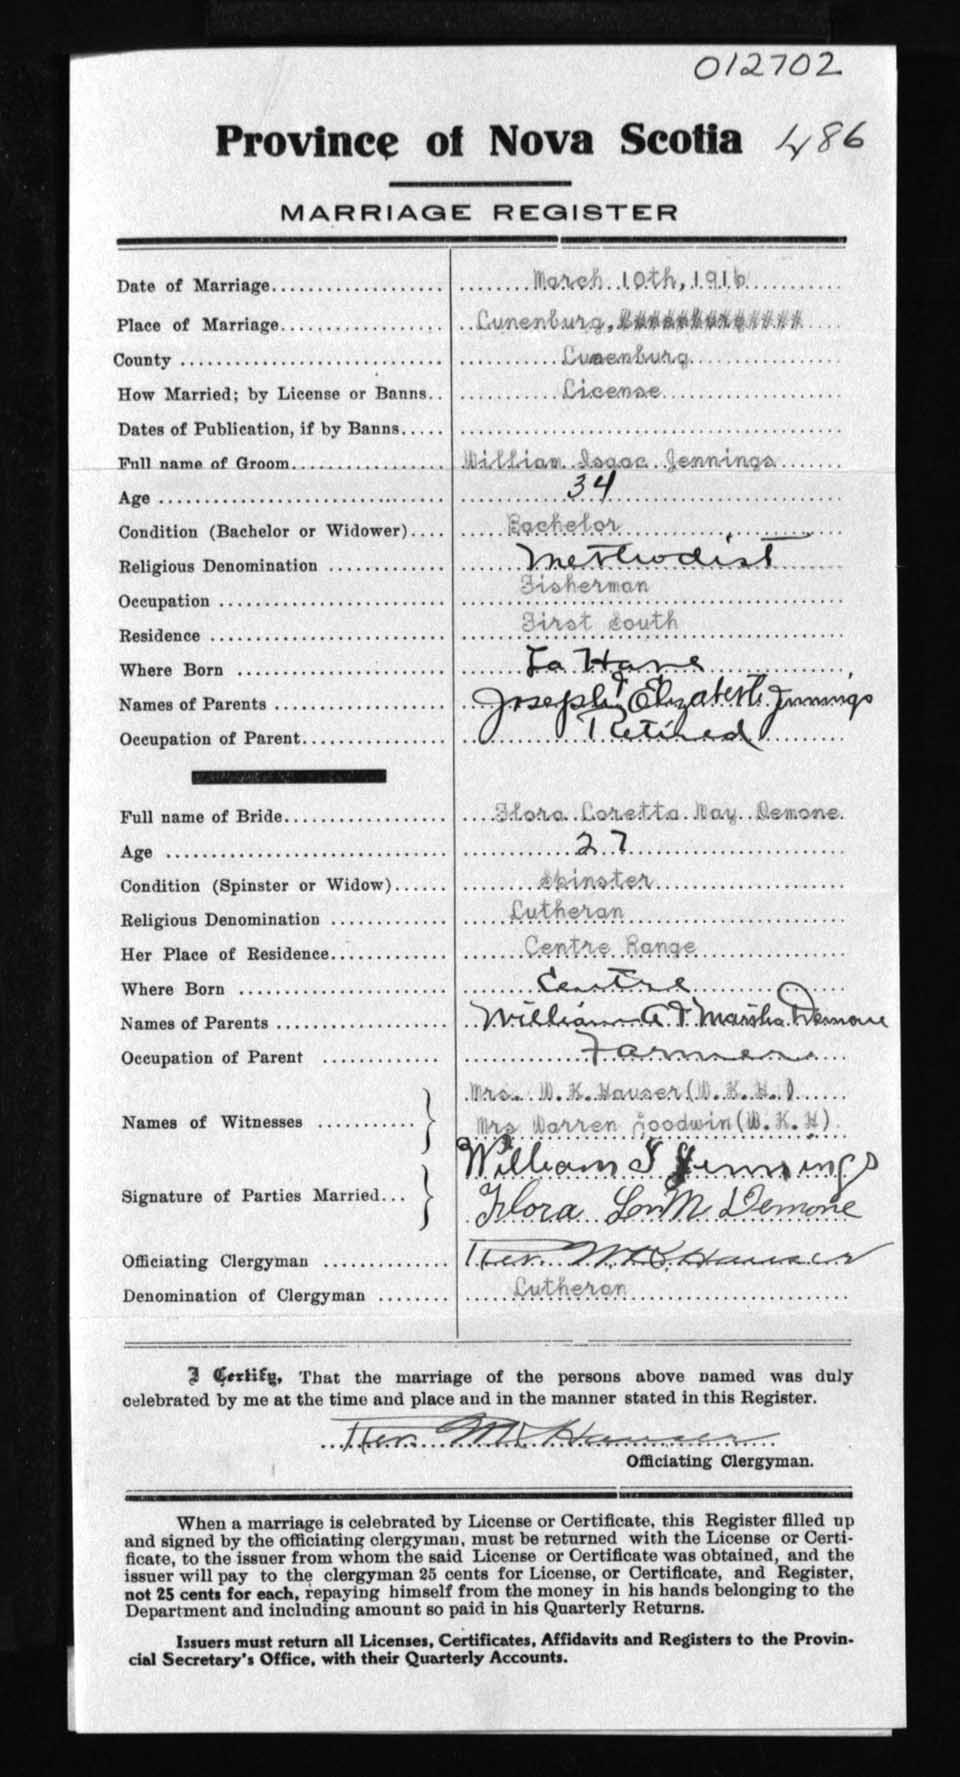 012702
Province of Nova Scotia 486
MARRIAGE REGISTER
Date of Marriage................... March 10th, 1916
Place of Marriage.................. Lunenburg,
County ............................. Lunenburg
How Married; by License or Banns.. License
Dates of Publication, if by Banns.....
Full name of Groom................. William Isaac Jennings
Age ................................ 34
Condition (Bachelor or Widower).... Bachelor
Religious Denomination ............. Methodist
Occupation ......................... Fisherman
Residence .......................... First South
Where Born ....................... La Have
Names of Parents ................... Joseph & Elizabeth Jennings
Occupation of Parent................ Retired
Full name of Bride.................. Flora Loretta May Demone
Age ............................... 27
Condition (Spinster or Widow)...... Spinster
Religious Denomination ............. Lutheran
Her Place of Residence............. Centre Range
Where Born ....................... Centre
Names of Parents ................... William A & Martha Demone
Occupation of Parent .............. Farmer
Mrs. W. K. Hauser (W. K. H.)
Names of Witnesses ...........
Mrs Warren Goodwin (W. K. H)
William I Jennings
Signature of Parties Married...
Flora M. Demone
Officiating Clergyman .............. Rev. W K Hauser
Denomination of Clergyman ........ Lutheran
I Certify, That the marriage of the persons above named was duly
celebrated by me at the time and place and in the manner stated in this Register.
Rev. W K Hauser
Officiating Clergyman.
When a marriage is celebrated by License or Certificate, this Register filled up
and signed by the officiating clergyman, must be returned with the License or Certi-
ficate, to the issuer from whom the said License or Certificate was obtained, and the
issuer will pay to the clergyman 25 cents for License, or Certificate, and Register,
not 25 cents for each, repaying himself from the money in his hands belonging to the
Department and including amount so paid in his Quarterly Returns.
Issuers must return all Licenses, Certificates, Affidavits and Registers to the Provin-
cial Secretary's Office, with their Quarterly Accounts.